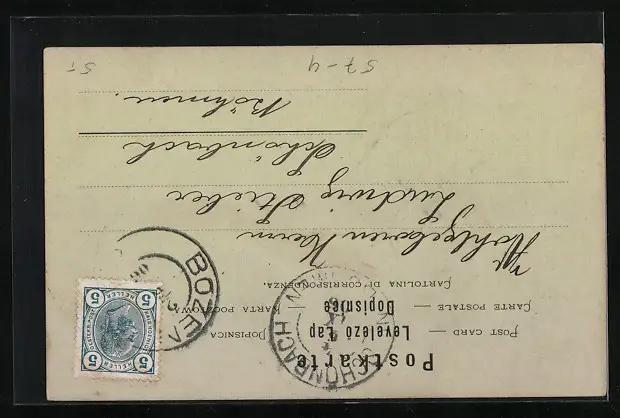 Postkarte
POST CARD — Levelező Lap — DOPISNICA
CARTE POSTALE — Dopisnice — KARTA POCZTOWA
CARTOLINA DI CORRISPONDENZA.
BOZEN
SCHÖNBACH
5 5
HELLER HELLER
5 5
Wohlgeboren Herrn
Ludwig Stieber
Schönbach
Böhmen.
57-4
5-